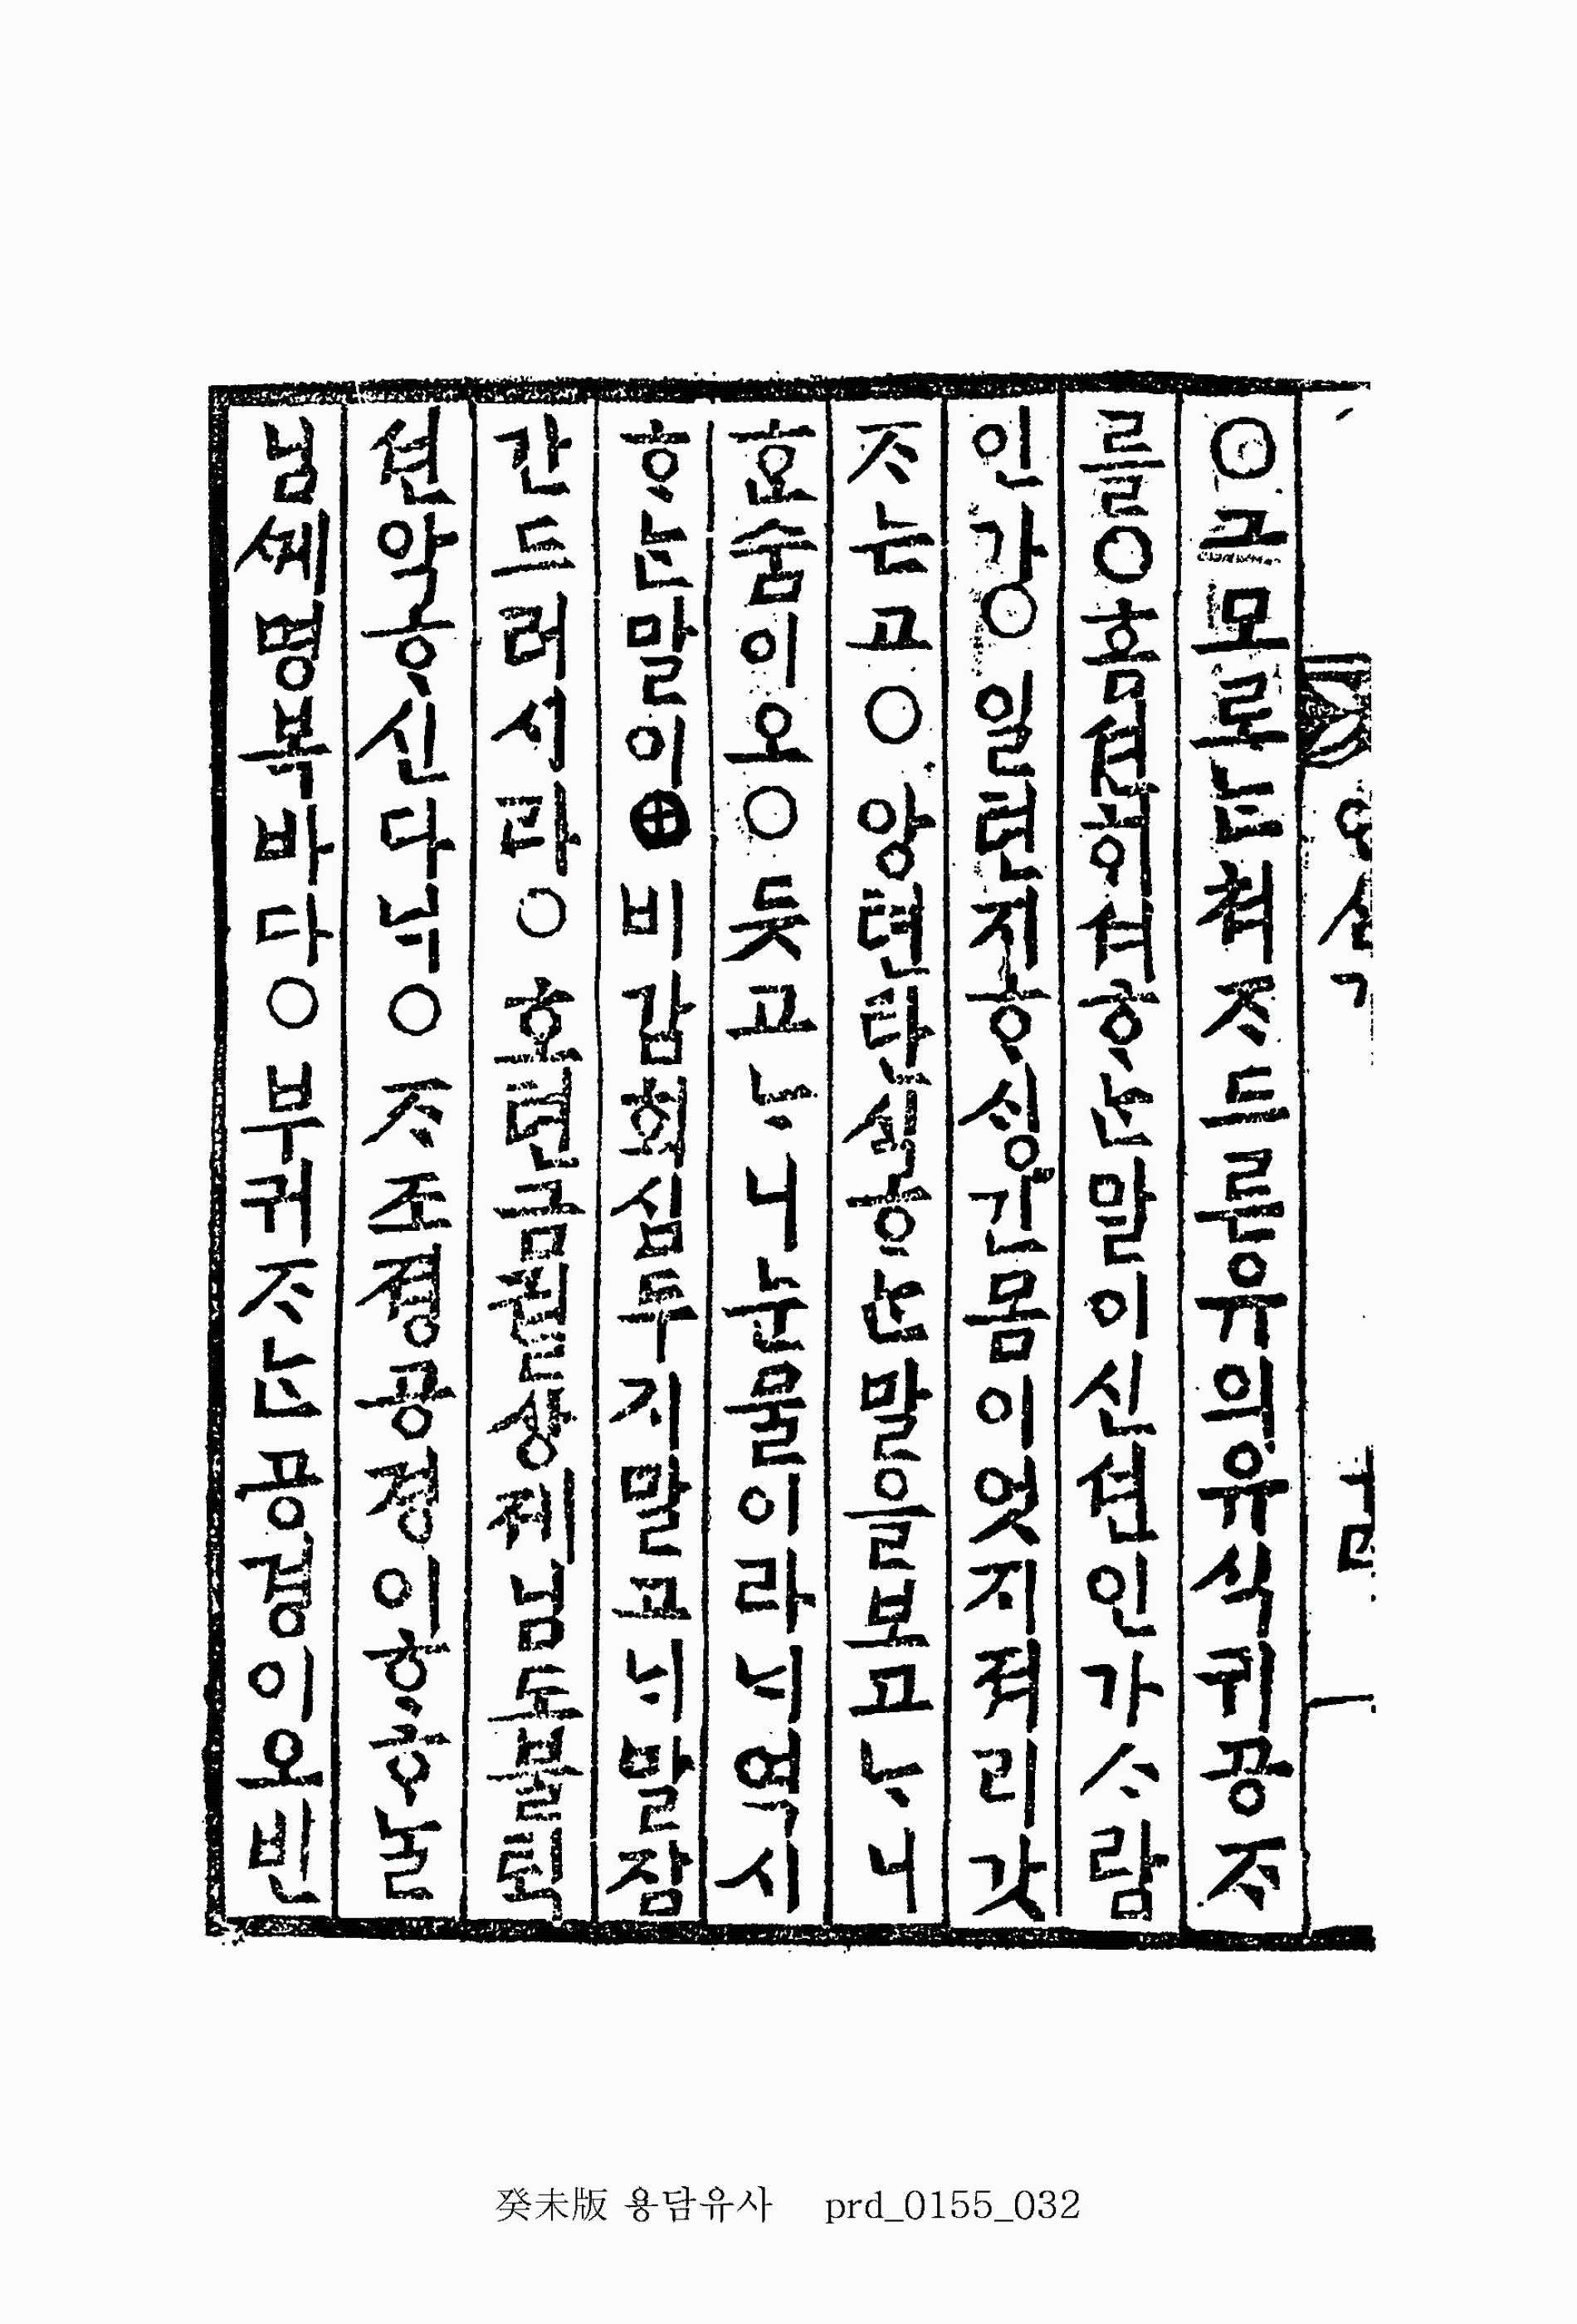 ○그모로ᄂᆞᆫ쳐ᄌᆞ드른유의유식귀공ᄌᆞ
를○흠션ᄒᆡ셔ᄒᆞᄂᆞᆫ말이신션인가ᄉᆞ람
인가○일텬지ᄒᆞᄉᆡᆼ긴몸이엇지져리갓
ᄌᆞ는고○앙텬탄식ᄒᆞᄂᆞᆫ말을보고ᄂᆞ니
ᄒᆞᆫ숨이오○듯고ᄂᆞ니눈물이라ᄂᆡ역시
ᄒᆞᄂᆞᆫ말이⊕비감회심두지말고ᄂᆡ말잠
간드러서라○호텬금궐상졔님도불ᄐᆡᆨ
션악ᄒᆞ신다ᄂᆡ○ᄌᆞ조졍공경이ᄒᆞᄒᆞᄂᆞᆯ
님ᄭᅦ명복바다○부귀ᄌᆞᄂᆞᆫ공경이오빈
癸未版 용담유사 prd_0155_032